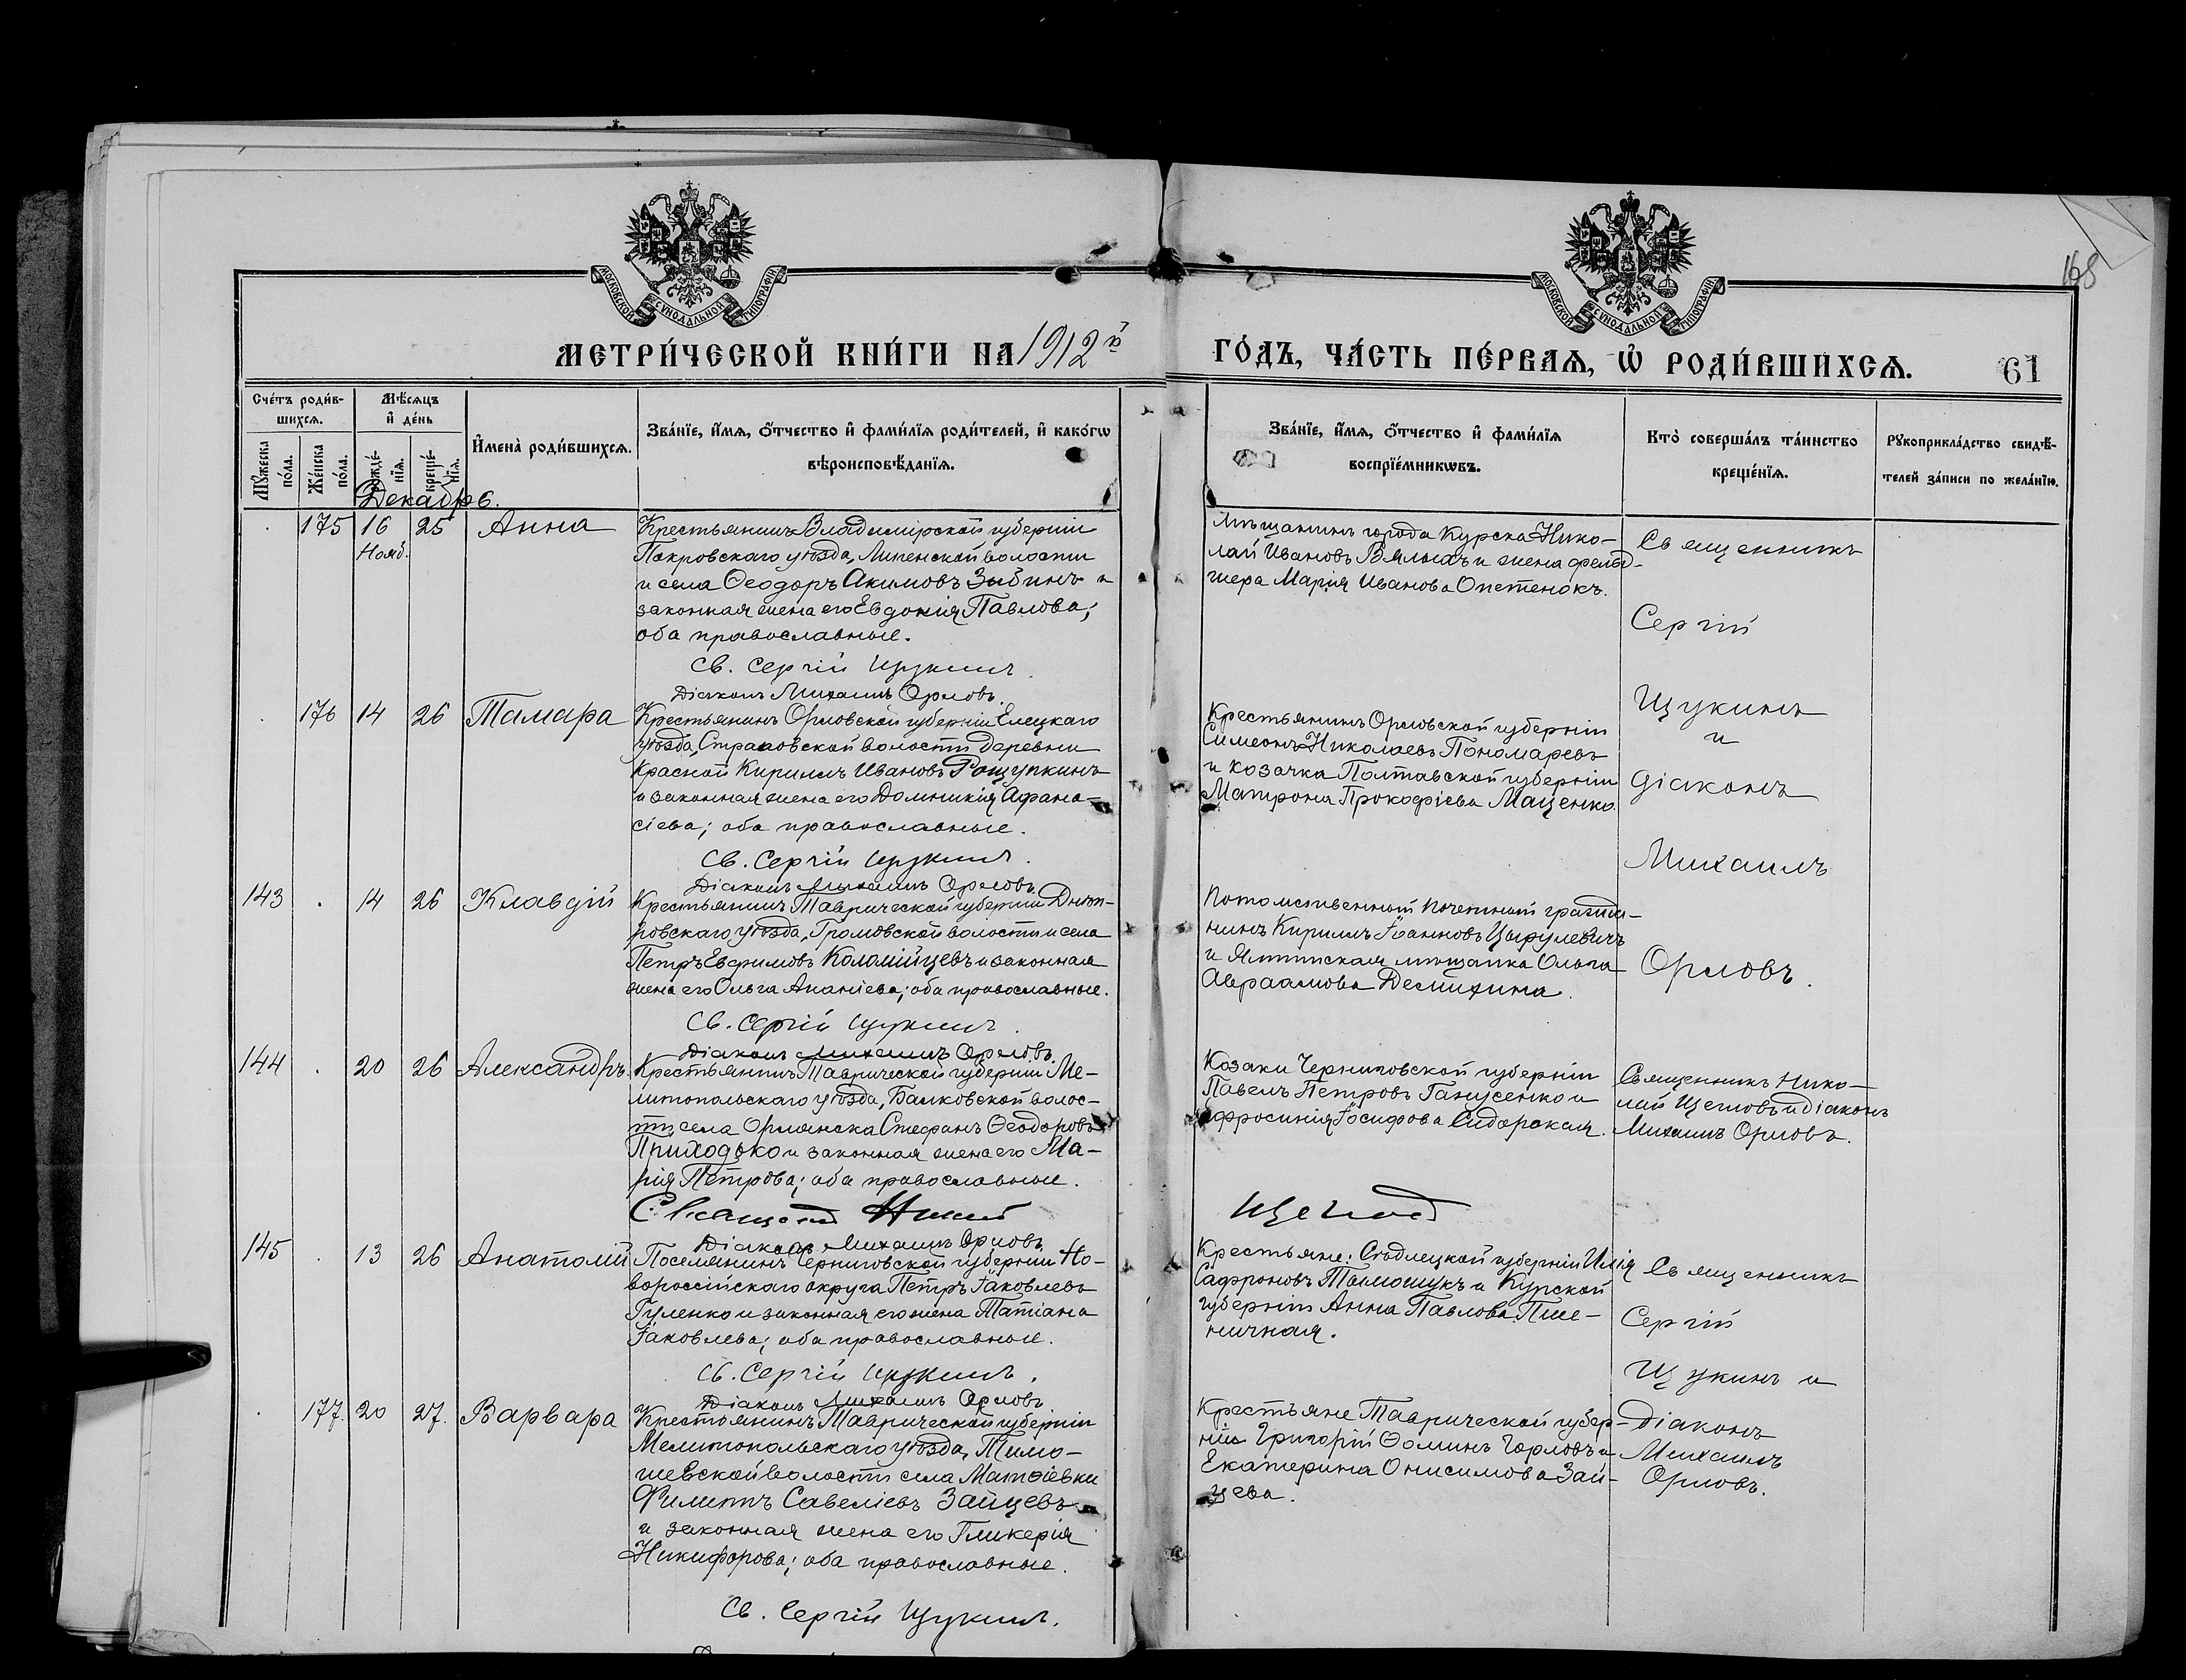 168
МОСКОВСКОЙ СѴНОДАЛЬНОЙ ТИПОГРАФІИ
МОСКОВСКОЙ СѴНОДАЛЬНОЙ ТИПОГРАФІИ
МЕТРИ́ЧЕСКОЙ КНИ́ГИ НА 1912й
ГО́ДЪ, ЧА́СТЬ ПЕ́РВАѦ, Ѡ҆ РОДИ́ВШИХСѦ.
61
Сче́тъ роди́в-
шихсѧ.
Мꙋ́жеска
по́ла.
Же́нска
по́ла.
Мѣ́сѧцъ
и҆ де́нь
рожде́-
нїѧ.
креще́-
нїѧ.
И҆мена̀ роди́вшихсѧ.
Зва́нїе, и҆́мѧ, ѻ҆́тчество и҆ фами́лїѧ роди́телей, и҆ како́гѡ
вѣроисповѣ́данїѧ.
Зва́нїе, и҆́мѧ, ѻ҆́тчество и҆ фами́лїѧ
воспрїе́мникѡвъ.
Кто̀ соверша́лъ та́инство
креще́нїѧ.
Рꙋкоприкла́дство свидѣ́-
телей за́писи по жела́нїю.
Декабрь.
175
16
Нояб.
25
Анна
Крестьянинъ Владимірской губерніи
Покровскаго уѣзда, Липенской волости
и села Ѳеодоръ Акимовъ Зыбинъ и
законная жена его Евдокія Павлова;
оба православные.
Св. Сергій Щукинъ.
Діаконъ Михаилъ Орловъ.
Мѣщанинъ города Курска Нико-
лай Ивановъ Вялыхъ и жена фельд-
шера Марія Иванова Опстенокъ.
Священникъ
Сергій
Щукинъ
и
діаконъ
Михаилъ
Орловъ.
176
14
26
Тамара
Крестьянинъ Орловской губерніи Елецкаго
уѣзда, Страховской волости деревни
Красной Кириллъ Ивановъ Рощупкинъ
и законная жена его Домникія Афана-
сіева; оба православные.
Св. Сергій Щукинъ.
Діаконъ Михаилъ Орловъ.
Крестьянинъ Орловской губерніи
Симеонъ Николаевъ Пономаревъ
и козачка Полтавской губерніи
Матрона Прокофіева Маценко.
143
14
26
Клавдій
Крестьянинъ Таврической губерніи Днѣп-
ровскаго уѣзда, Громовской волости и села
Петръ Евфимовъ Коломійцевъ и законная
жена его Ольга Ананіева; оба православные.
Св. Сергій Щукинъ.
Діаконъ Михаилъ Орловъ.
Потомственный почетный гражда-
нинъ Кириллъ Іоанновъ Цыфулевичъ
и Ялтинская мѣщанка Ольга
Авраамова Демихина.
144
20
26
Александръ.
Крестьянинъ Таврической губерніи Ме-
литопольскаго уѣзда, Балковской волос-
ти, села Орлянска Стефанъ Ѳеодоровъ
Приходько и законная жена его Ма-
рія Петрова; оба православные.
Священникъ Николай Щегловъ
Діаконъ Михаилъ Орловъ.
Козаки Черниговской губерніи
Павелъ Петровъ Ганусенко и
Ефросинія Іосифова Сидорская.
Священникъ Нико-
лай Щегловъ и діаконъ
Михаилъ Орловъ.
145
13
26
Анатолій
Поселянинъ Черниговской губерніи Но-
вороссійскаго округа Петръ Іаковлевъ
Гуленко и законная его жена Татіана
Іаковлева; оба православные.
Св. Сергій Щукинъ.
Діаконъ Михаилъ Орловъ
Крестьяне: Сѣдлецкой губерніи Илія
Сафроновъ Томашукъ и Курской
губерніи Анна Павлова Пше-
ничная.
Священникъ
Сергій
Щукинъ и
діаконъ
Михаилъ
Орловъ.
177.
20
27.
Варвара
Крестьянинъ Таврической губерніи
Мелитопольскаго уѣзда, Тимо-
шевской волости села Матвіевки
Филиппъ Савеліевъ Зайцевъ
и законная жена его Гликерія
Никифорова; оба православные.
Св. Сергій Щукинъ.
Крестьяне Таврической губер-
ніи Григорій Ѳоминъ Горловъ и
Екатерина Онисимова Зай-
цева.